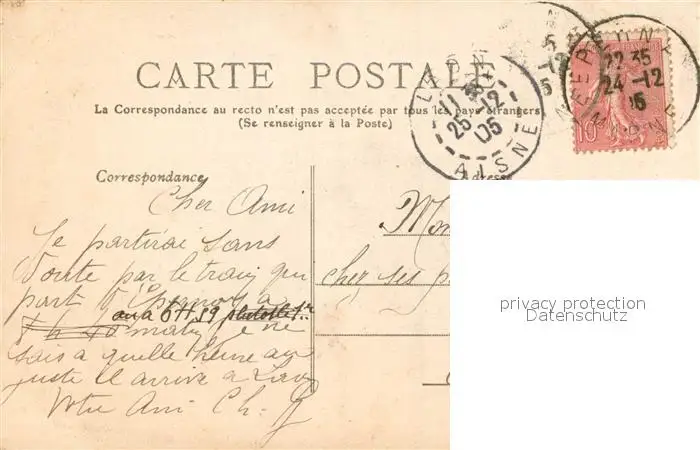 CARTE POSTALE
La Correspondance au recto n'est pas acceptée par tous les pays étrangers
(Se renseigner à la Poste)
LAON
11
25-12
05
AISNE
22 35
24-12
05
MARNE
FRANÇAISE
10
Correspondance
Adresse
Cher Ami
Je partirai sans
doute par le train qui
part d'Epernay à
ou à 6H 59
7h 40 matin je ne
sais à quelle heure au
juste il arrive à Laon
Votre Ami Ch.
chez ses p
privacy protection
Datenschutz